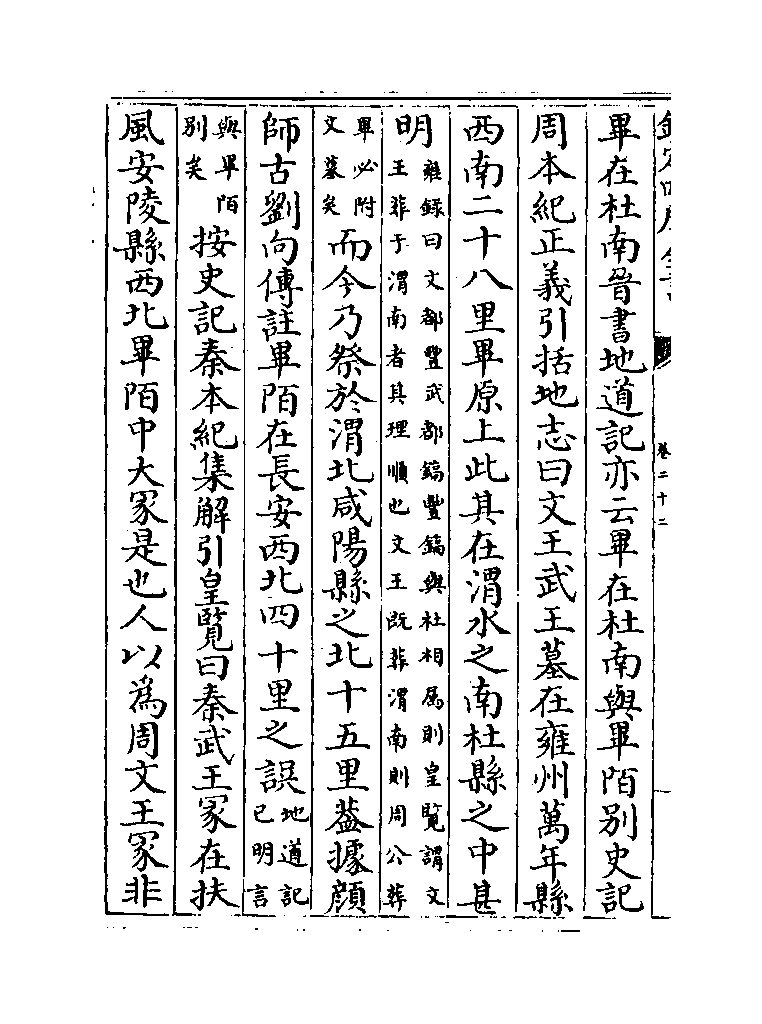 欽定四庫全書
卷二十二
畢在杜南晉書地道記亦云畢在杜南與畢陌别史記
周本紀正義引括地志曰文王武王墓在雍州萬年縣
西南二十八里畢原上此其在渭水之南杜縣之中甚
明雍録曰文都豐武都鎬豐鎬與杜相屬則皇覽謂文
王葬于渭南者其理順也文王既葬渭南則周公葬
畢必附
文墓矣而今乃祭於渭北咸陽縣之北十五里葢據顔
師古劉向傳註畢陌在長安西北四十里之誤地道記
已明言
與畢陌
别矣按史記秦本紀集解引皇覽曰秦武王冢在扶
風安陵縣西北畢陌中大冢是也人以爲周文王冢非